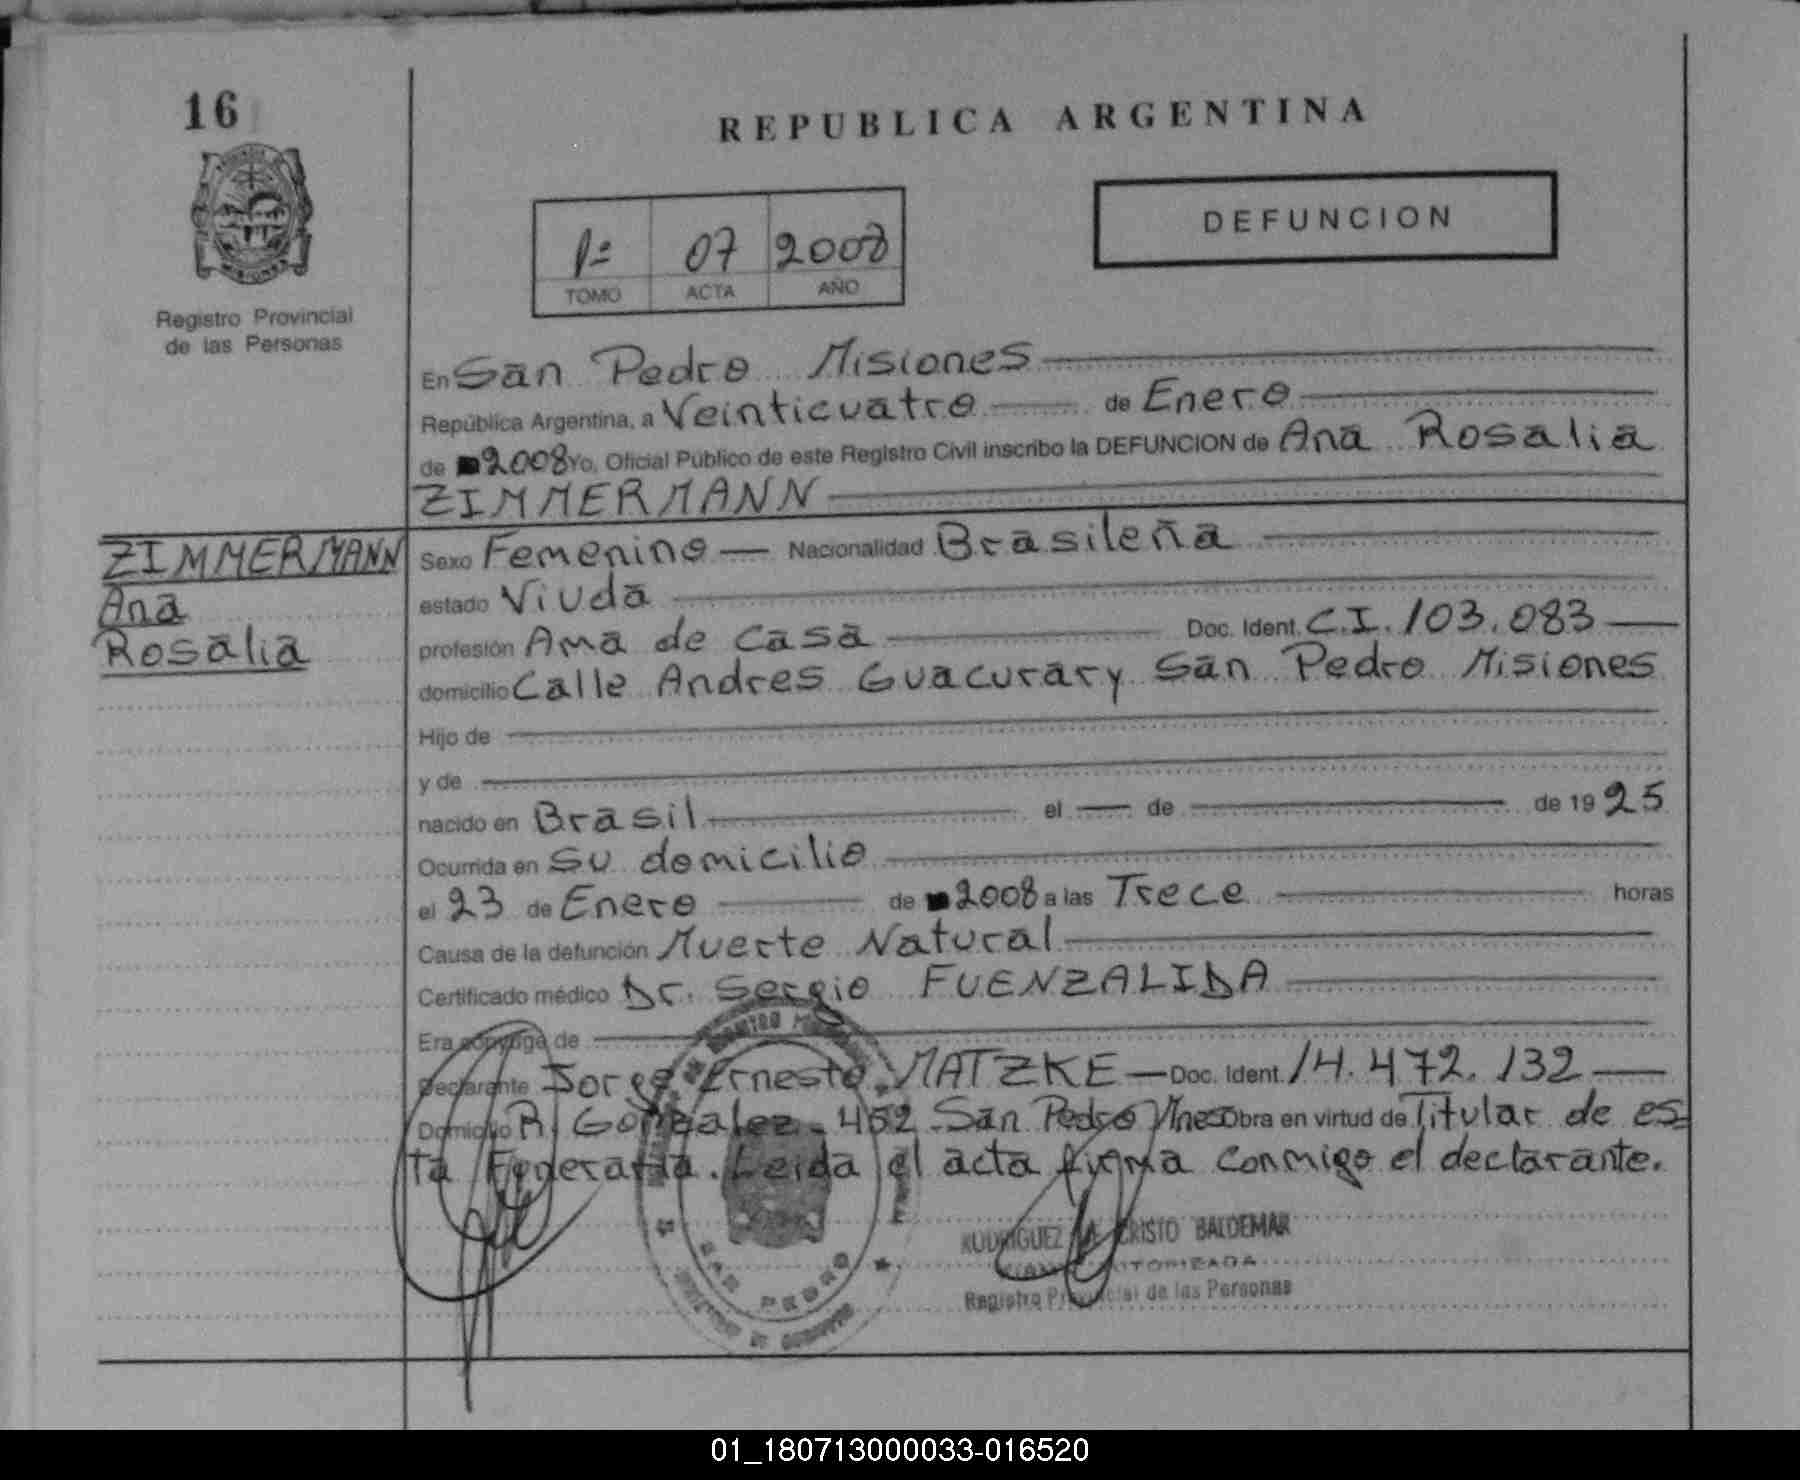 16
REPUBLICA ARGENTINA
DEFUNCION
1º 07 2008
TOMO ACTA AÑO
MISIONES
Registro Provincial
de las Personas
En San Pedro Misiones
República Argentina, a Veinticuatro de Enero
de 2008 Yo, Oficial Público de este Registro Civil inscribo la DEFUNCION de Ana Rosalia
ZIMMERMANN
ZIMMERMANN
Ana
Rosalia
Sexo Femenino Nacionalidad Brasileña
estado Viuda
profesión Ama de casa Doc. Ident. C.I. 103.083
domicilio Calle Andres Guacurary San Pedro Misiones
Hijo de
y de
nacido en Brasil el de de 1925
Ocurrida en su domicilio
el 23 de Enero de 2008 a las Trece horas
Causa de la defunción Muerte Natural
Certificado médico Dr. Sergio FUENZALIDA
Era cónyuge de
Declarante Jorge Ernesto MATZKE Doc. Ident. 14.472.132
Domicilio R. Gonzalez 452 San Pedro Mnes Obra en virtud de Titular de es=
ta Funeraria. Leida el acta firma conmigo el declarante.
SAN PEDRO
RODRIGUEZ CRISTO BALDEMAR
AUTORIZADA
Registro Provincial de las Personas
01_180713000033-016520